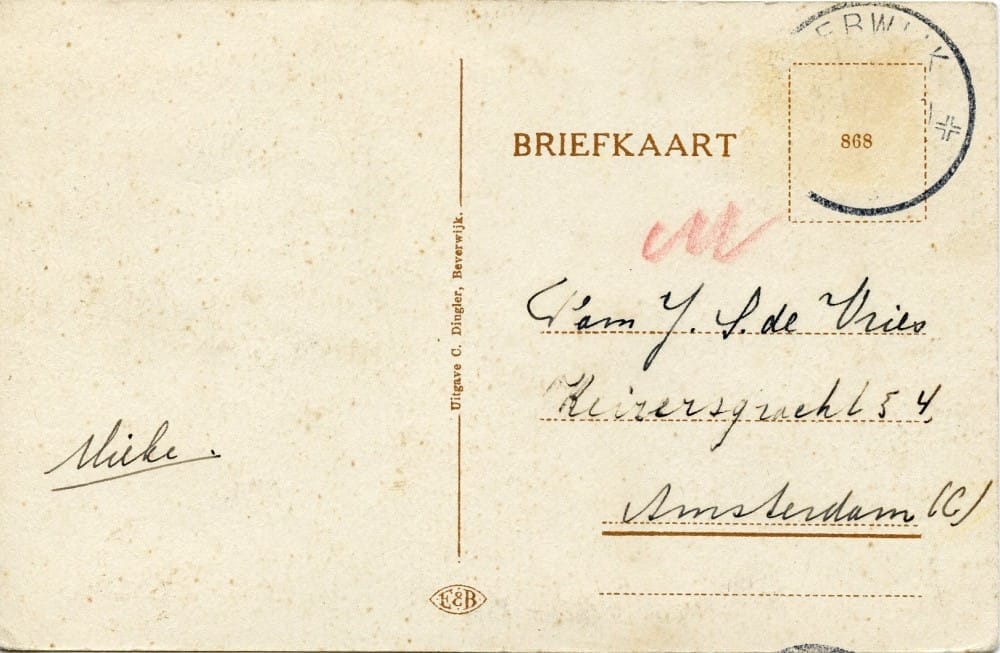 ERWIJK
BRIEFKAART
868
Fam J. S. de Vries
Keizersgracht 54
Amsterdam (C)
Uitgave C. Dingler, Beverwijk.
Mieke.
E&B